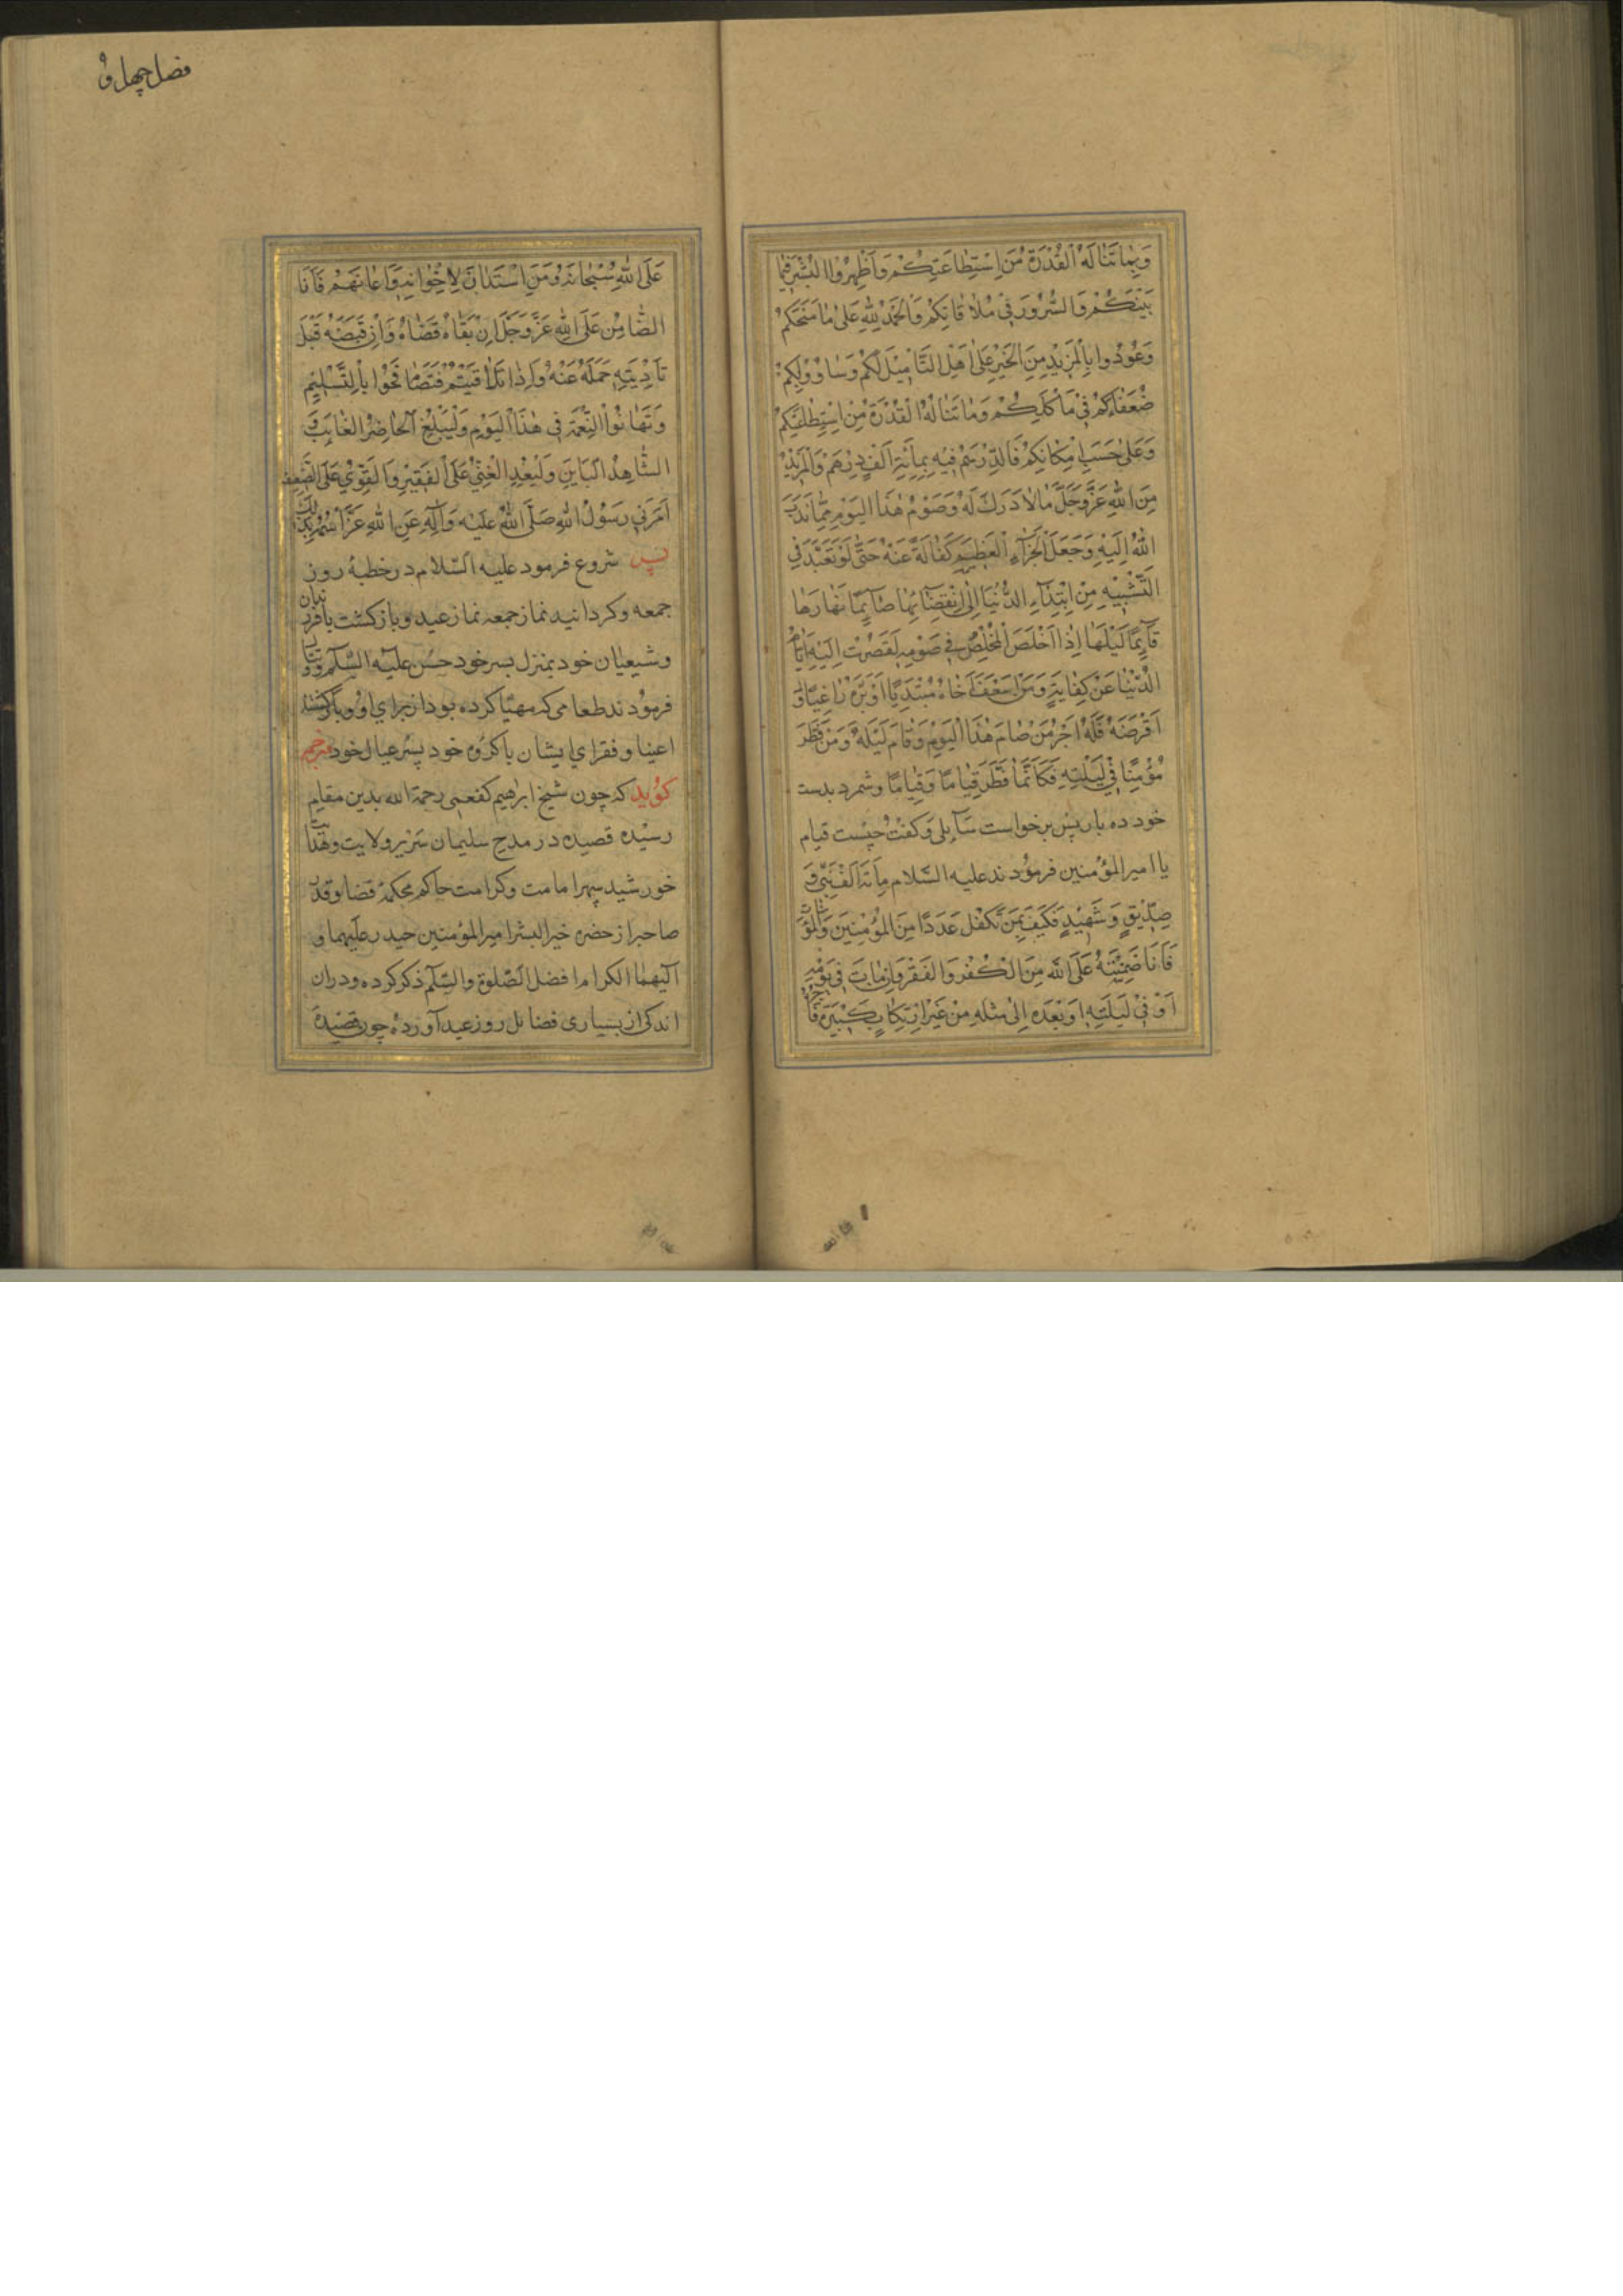 وَبِمَا تَنَالُهُ الْقُدْرَةُ مِنَ اسْتِطَاعَتِكُمْ وَأَظْهِرُوا الْبِشْرَ فِيمَا
بَيْنَكُمْ وَالسُّرُورَ فِي مُلَاقَاتِكُمْ وَالْحَمْدُ لِلَّهِ عَلَى مَا مَنَحَكُمْ
وَعُودُوا بِالْمَزِيدِ مِنَ الْخَيْرِ عَلَى أَهْلِ التَّأْمِيلِ لَكُمْ وَسَاوُوا بِكُمْ
ضُعَفَاءَكُمْ فِي مَأْكَلِكُمْ وَمَا تَنَالُهُ الْقُدْرَةُ مِنِ اسْتِطَاعَتِكُمْ
وَعَلَى حَسَبِ إِمْكَانِكُمْ فَالدِّرْهَمُ فِيهِ بِمِائَةِ أَلْفِ دِرْهَمٍ وَالْمَزِيدُ
مِنَ اللَّهِ عَزَّ وَجَلَّ مَا لَا دَرَكَ لَهُ وَصَوْمُ هَذَا الْيَوْمِ مِمَّا نَدَبَ
اللَّهُ إِلَيْهِ وَجَعَلَ الْجَزَاءَ الْعَظِيمَ كَفَالَةً عَنْهُ حَتَّى لَوْ تَعَبَّدَ فِي
التَّشْبِيهِ مِنِ ابْتِدَاءِ الدُّنْيَا إِلَى انْقِضَائِهَا صَائِمًا نَهَارَهَا
قَائِمًا لَيْلَهَا إِذَا أَخْلَصَ الْمُخْلِصُ فِي صَوْمِهِ لَقَصُرَتْ إِلَيْهِ أَيَّامُ
الدُّنْيَا عَنْ كِفَايَةٍ وَمَنْ أَسْعَفَ أَخَاهُ مُبْتَدِيًا أَوْ بَرَّهُ رَاغِبًا وَ
أَقْرَضَهُ فَلَهُ أَجْرُ مَنْ صَامَ هَذَا الْيَوْمَ وَقَامَ لَيْلَهُ وَمَنْ فَطَّرَ
مُؤْمِنًا فِي لَيْلَتِهِ فَكَأَنَّمَا فَطَّرَ فِيَامًا وَفِيَامًا وشمرد بدست
خود ده بار پس برخواست سآیلی وکفت چیست فیام
یا امیر المؤمنین فرمودند علیه السّلام مِائَةُ أَلْفِ نَبِيٍّ وَ
صِدِّيقٍ وَشَهِيدٍ فَكَيْفَ بِمَنْ تَكَفَّلَ عَدَدًا مِنَ الْمُؤْمِنِينَ وَالْمُؤْمِنَاتِ
فَأَنَا ضَمِينُهُ عَلَى اللَّهِ مِنَ الْكُفْرِ وَالْفَقْرِ وَإِنْ مَاتَ فِي يَوْمِهِ
أَوْ فِي لَيْلَتِهِ أَوْ بَعْدَهُ إِلَى مِثْلِهِ مِنْ غَيْرِ ارْتِكَابِ كَبِيرَةٍ فَأَجْرُهُ
فصل چهل و
عَلَى اللَّهِ سُبْحَانَهُ وَمَنِ اسْتَدَانَ لِإِخْوَانِهِ وَأَعَانَهُمْ فَأَنَا
الضَّامِنُ عَلَى اللَّهِ عَزَّ وَجَلَّ إِنْ بَقَّاهُ قَضَاهُ وَإِنْ قَبَضَهُ قَبْلَ
تَأْدِيَتِهِ حَمَلَهُ عَنْهُ وَإِذَا تَلَاقَيْتُمْ فَتَصَافَحُوا بِالتَّسْلِيمِ
وَتَهَانَوُا النِّعْمَةَ فِي هَذَا الْيَوْمِ وَلْيُبَلِّغِ الْحَاضِرُ الْغَائِبَ وَ
الشَّاهِدُ الْبَايِنَ وَلْيَعُدِ الْغَنِيُّ عَلَى الْفَقِيرِ وَالْقَوِيُّ عَلَى الضَّعِيفِ
أَمَرَنِي رَسُولُ اللَّهِ صَلَّى اللَّهُ عَلَيْهِ وَآلِهِ عَنِ اللَّهِ عَزَّ اسْمُهُ بِذَلِكَ
پس شروع فرمود علیه السّلام در خطبهٔ روز
جمعه وکردانید نماز جمعه نماز عید وبازکشت بافرزندان
وشیعیان خود بمنزل پسر خود حسن علیه السّلام وتناول
فرمودند طعامی که مهیّا کرده بود از برای او وبازکشتند
اغنیا وفقرای ایشان باکروه خود بسر عیال خود مترجم
کوید که چون شیخ ابرهیم کفعمی رحمة الله بدین مقام
رسیده قصیده در مدح سلیمان سریر ولایت وهدایت
خورشید سپهر امامت وکرامت حاکم محکمهٔ قضا وقدر
صاحبراز حضرة خیر البشر امیر المؤمنین حیدر علیهما و
آلیهما الکرام افضل الصّلوة والسّلم ذکر کرده ودران
اندکی از بسیاری فضائل روز عید آورده چون قصیدهٔ